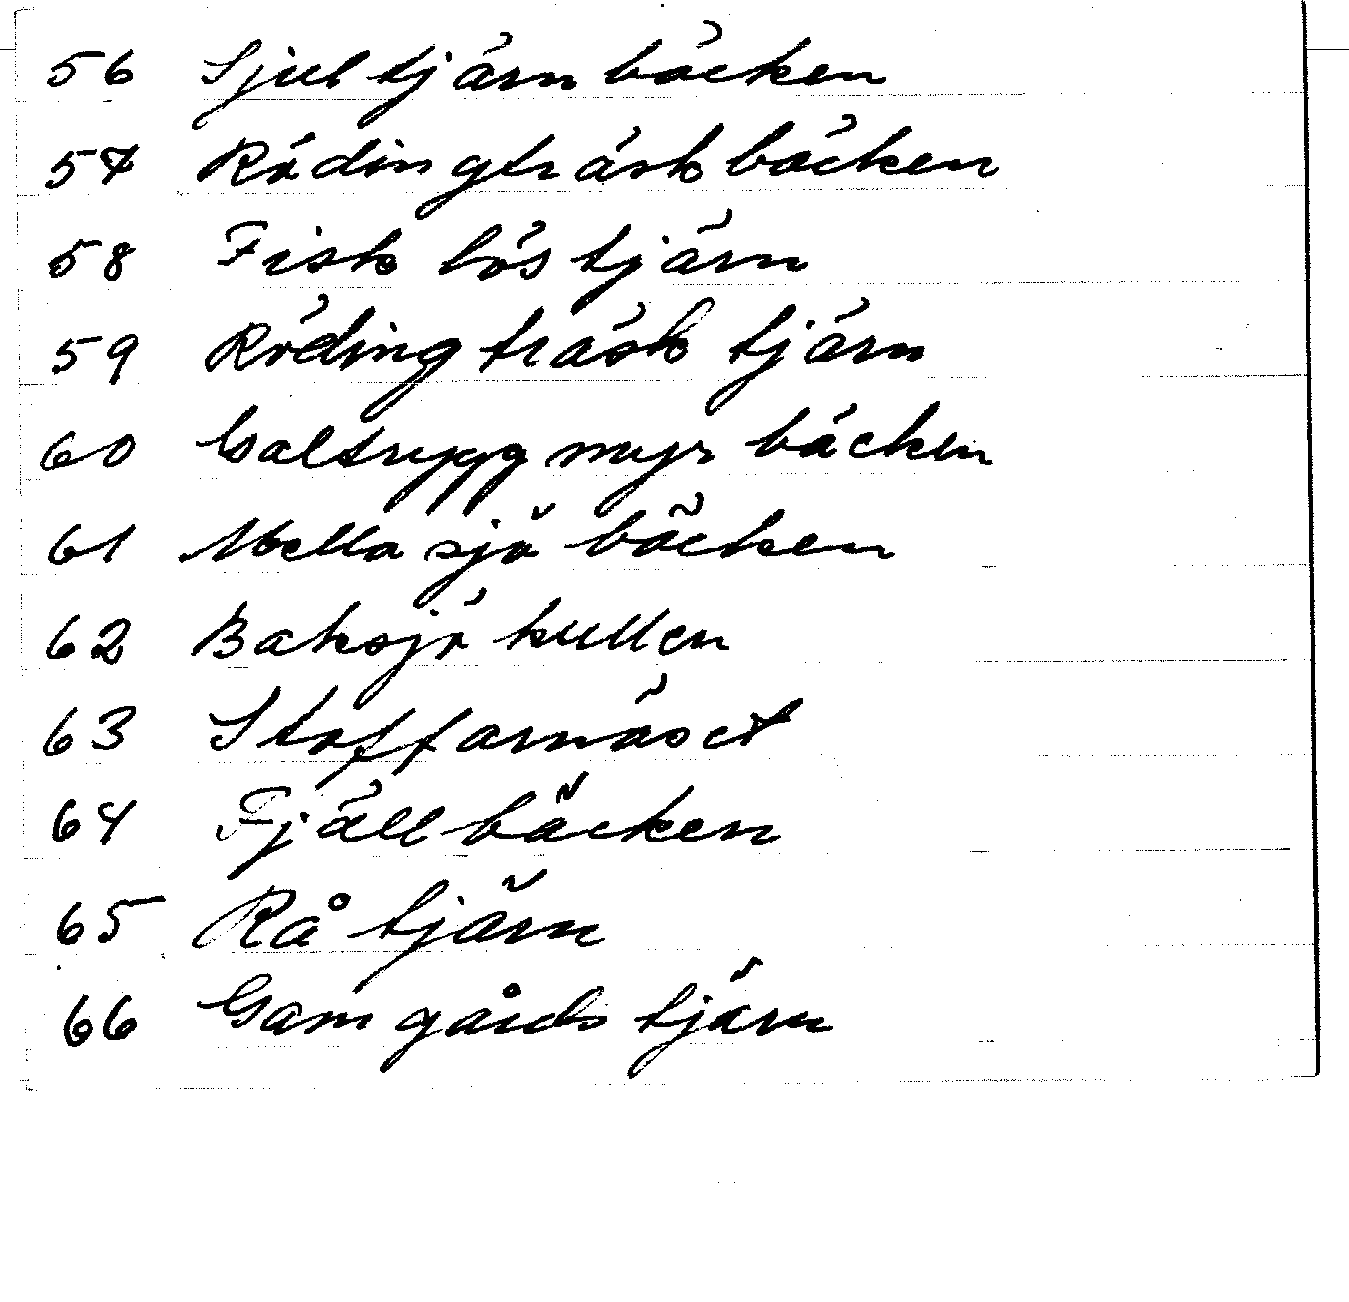 56 Sjul tjärn bäcken
57 Rödingträsk bäcken
58 Fisk lös tjärn
59 Röding träsk tjärn
60 Galtrygg myr bäcken
61 Mella sjö bäcken
62 Baksjö kullen
63 Staffarnäset
64 Fjäll bäcken
65 Rå tjärn
66 Gam gårds tjärn